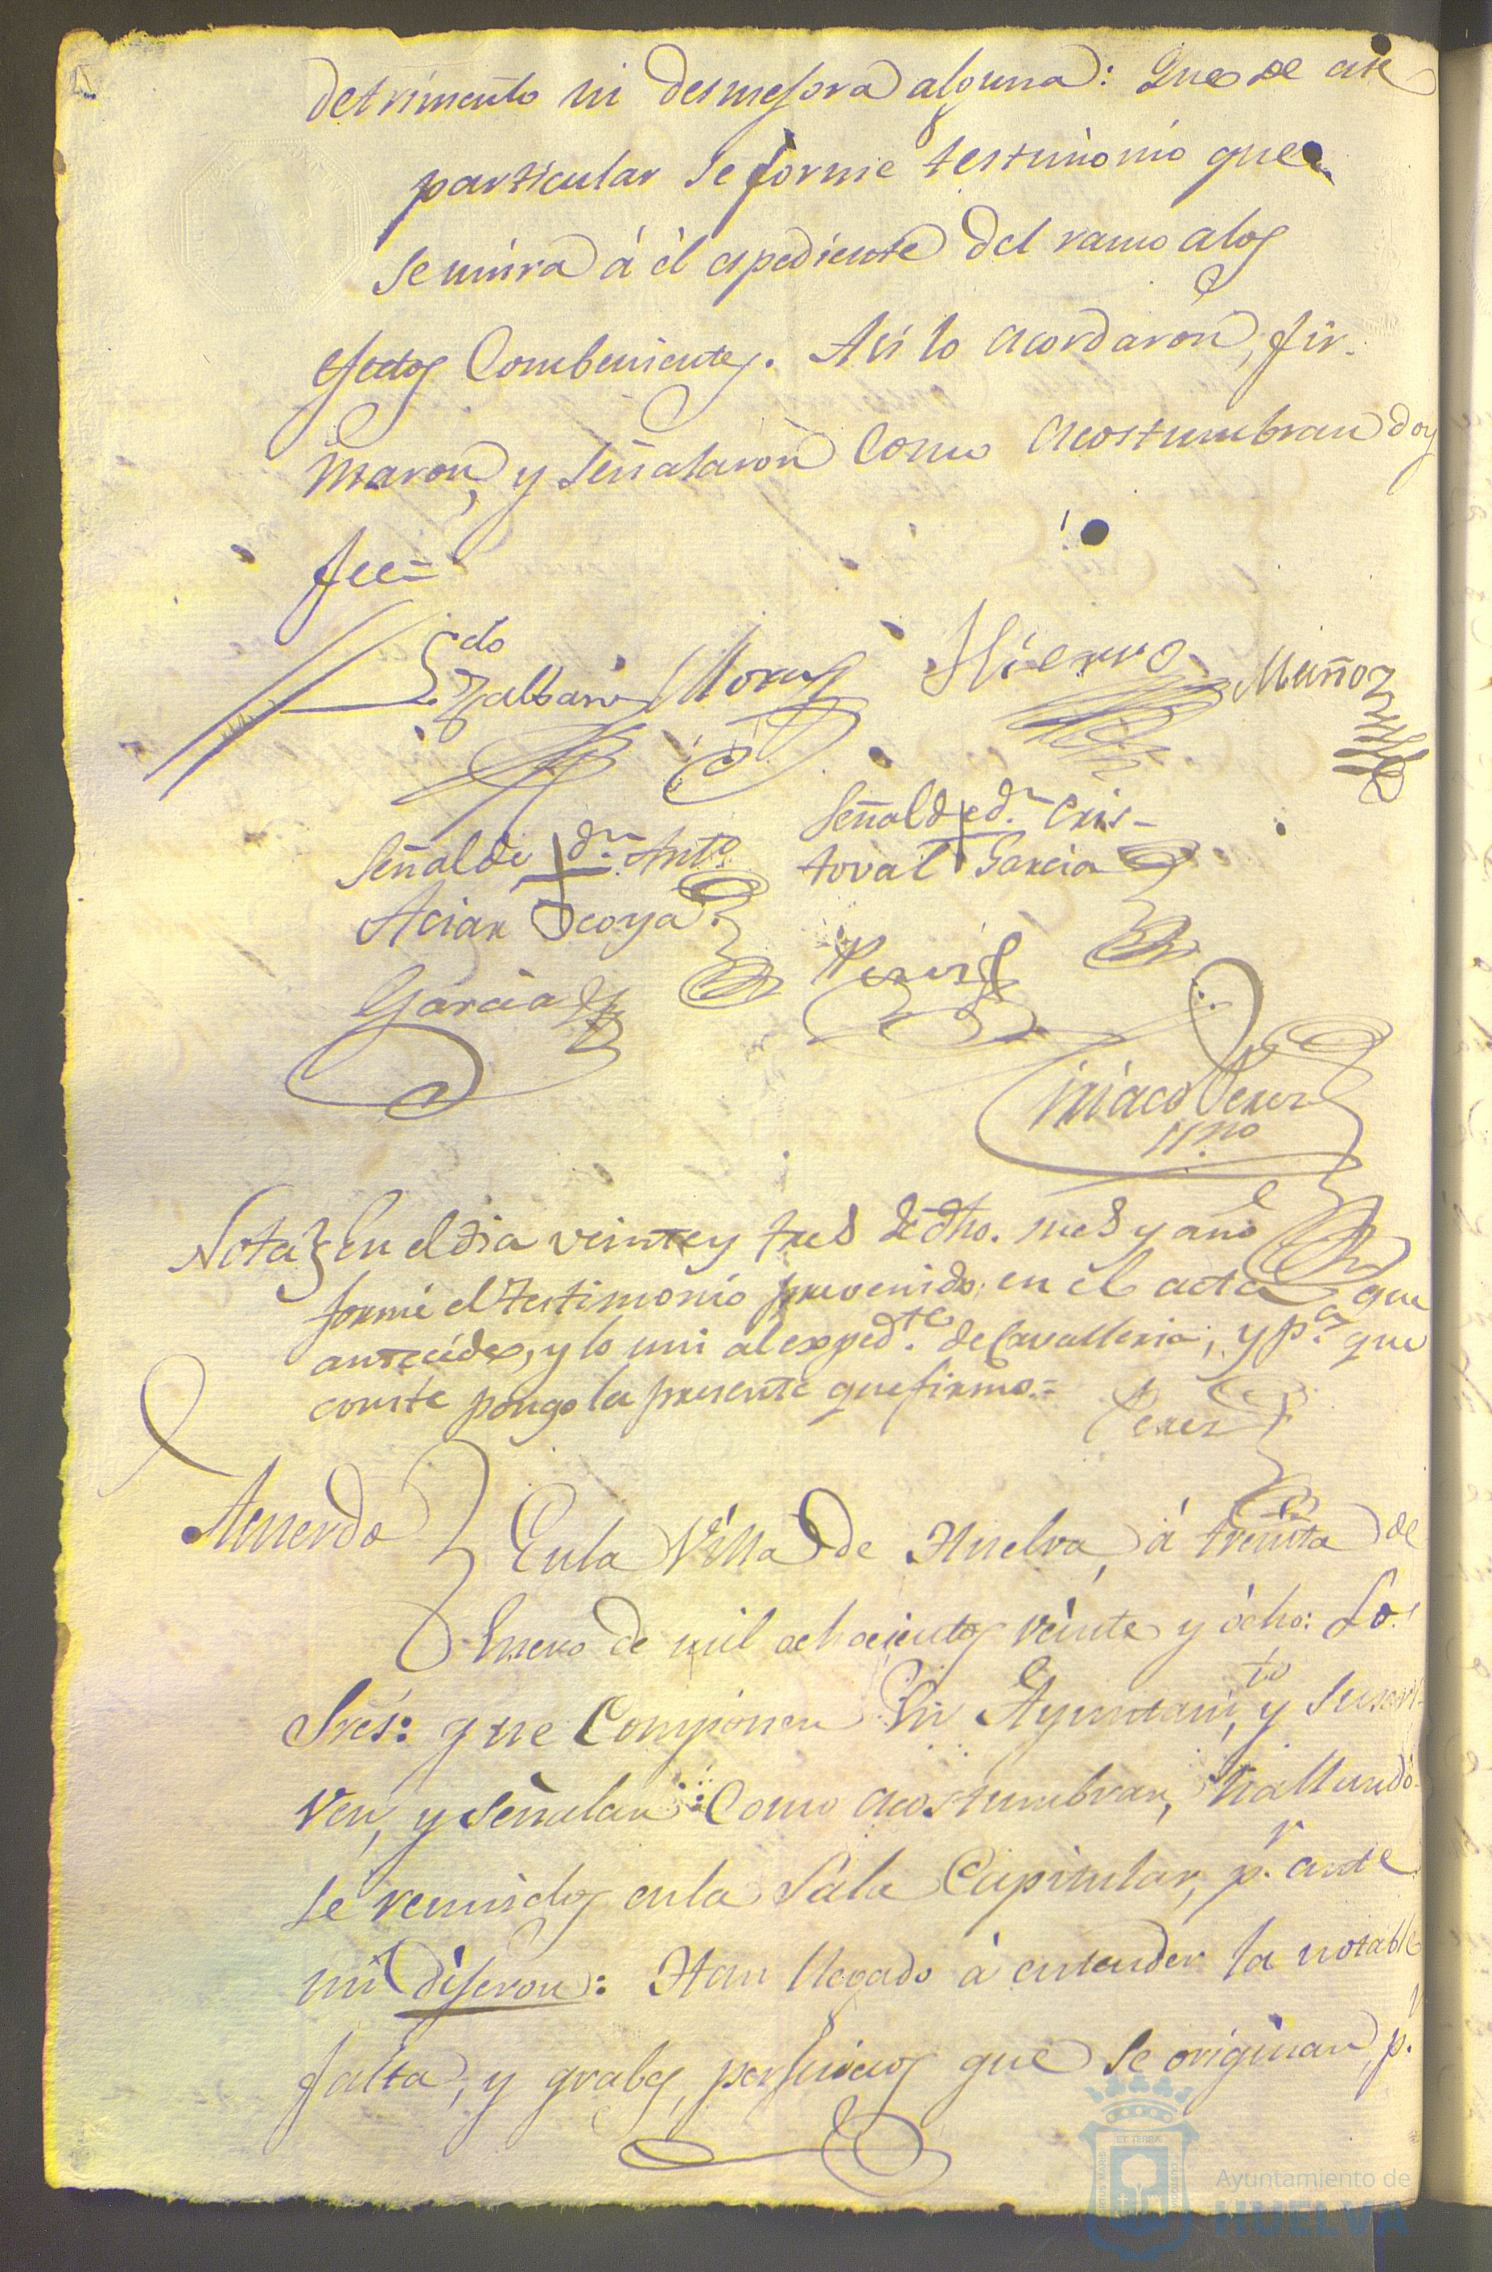 detrimento ni desmejora alguna: Que de este
particular se forme testimonio que
se unira á él espediente del ramo a los
efectos Combenientes. Asi lo acordaron, fir-
maron, y señalaron Como acostumbran doy
fee=
Lcdo
Zalbari Moras Hierro Muñoz
Señal de dn. Anto. Señal de dn. Cris-
toval Garcia
Garcia
Ciriaco Perez
Nota En el dia veinte y tres de dho. mes y año
formé el testimonio prevenido en el acta que
antecéde, y lo uni al expedte. de Cavalleria; y pa. que
conste pongo la presente que firmo.=
Perez
Acuerdo En la Villa de Huelva, á treinta de
Enero de mil ochocientos veinte y ócho: Los
Sres: que Componen su Ayuntamto, y suscri-
ven, y señalan Como acostumbran, hallando-
se reunidos en la Sala Capitular, pr. ante
mi dijeron: Han llegado á entender la notable
falta, y grabes, perjuicios que se originan, pr.
Ayuntamiento de
HUELVA